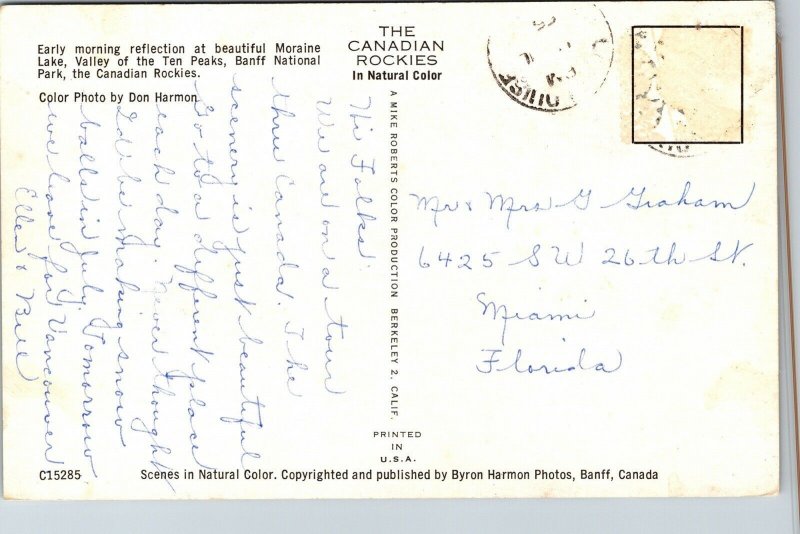 Early morning reflection at beautiful Moraine
Lake, Valley of the Ten Peaks, Banff National
Park, the Canadian Rockies.
Color Photo by Don Harmon
THE
CANADIAN
ROCKIES
In Natural Color
A MIKE ROBERTS COLOR PRODUCTION BERKELEY 2, CALIF.
Hi Folks:
We are on a tour
thru Canada. The
scenery is just beautiful
Go to a different place
each day. Never thought
I'd be making snow
balls in July. Tomorrow
we leave for Vancouver
Ellen & Bill
Mr & Mrs G Graham
6425 SW 26th St.
Miami
Florida
PRINTED
IN
U.S.A.
C15285
Scenes in Natural Color. Copyrighted and published by Byron Harmon Photos, Banff, Canada